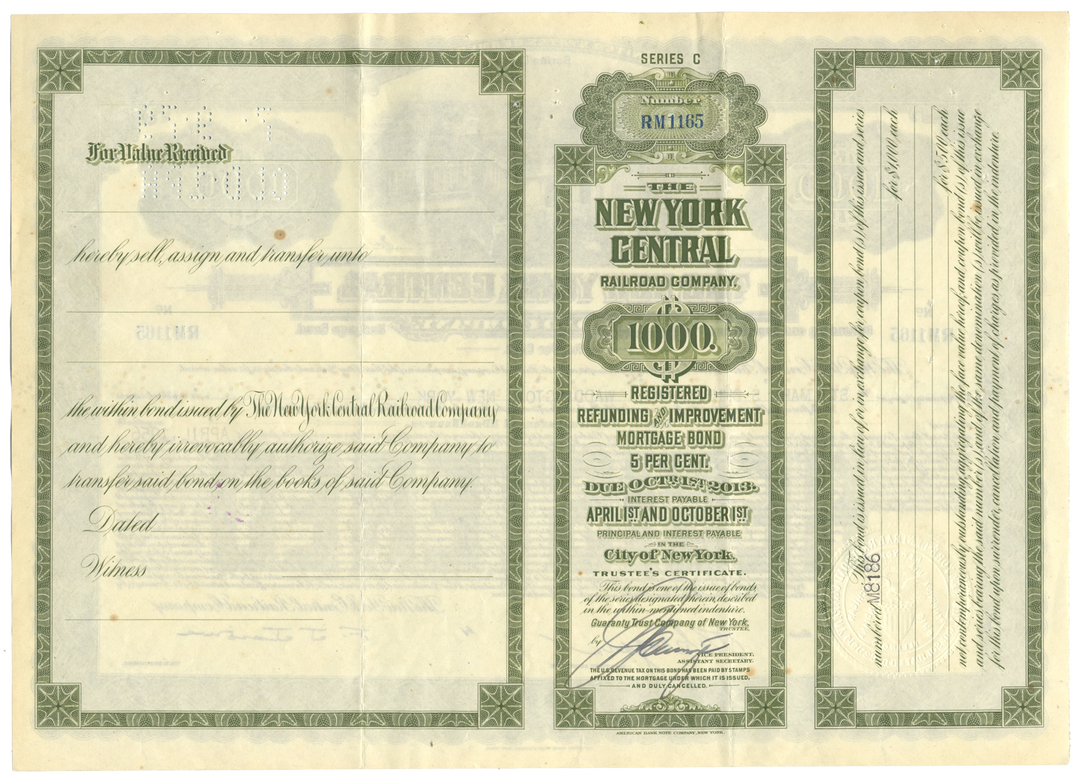 For Value Received
hereby sell, assign and transfer unto
the within bond issued by The New York Central Railroad Company
and hereby irrevocably authorize said Company to
transfer said bond on the books of said Company.
Dated
Witness
SERIES C
Number
RM1165
THE
NEW YORK
CENTRAL
RAILROAD COMPANY.
1000.
REGISTERED
REFUNDING AND IMPROVEMENT
MORTGAGE BOND
5 PER CENT.
DUE OCT. 1ST 2013.
INTEREST PAYABLE
APRIL 1ST AND OCTOBER 1ST
PRINCIPAL AND INTEREST PAYABLE
IN THE
City of New York.
TRUSTEE'S CERTIFICATE.
This bond is one of the issue of bonds
of the series designated therein, described
in the within-mentioned indenture.
Guaranty Trust Company of New York,
TRUSTEE,
by
VICE PRESIDENT.
ASSISTANT SECRETARY.
THE U.S. REVENUE TAX ON THIS BOND HAS BEEN PAID BY STAMPS
AFFIXED TO THE MORTGAGE UNDER WHICH IT IS ISSUED,
AND DULY CANCELLED.
AMERICAN BANK NOTE COMPANY, NEW YORK.
This bond is issued in lieu of or in exchange for coupon bond(s) of this issue and series
numbered M8186 for $1,000 each
for $500 each
not contemporaneously outstanding, aggregating the face value hereof, and coupon bond(s) of this issue
and series bearing the said number(s), and of the same denomination(s), will be issued in exchange
for this bond upon surrender, cancellation and payment of charges as provided in the indenture.